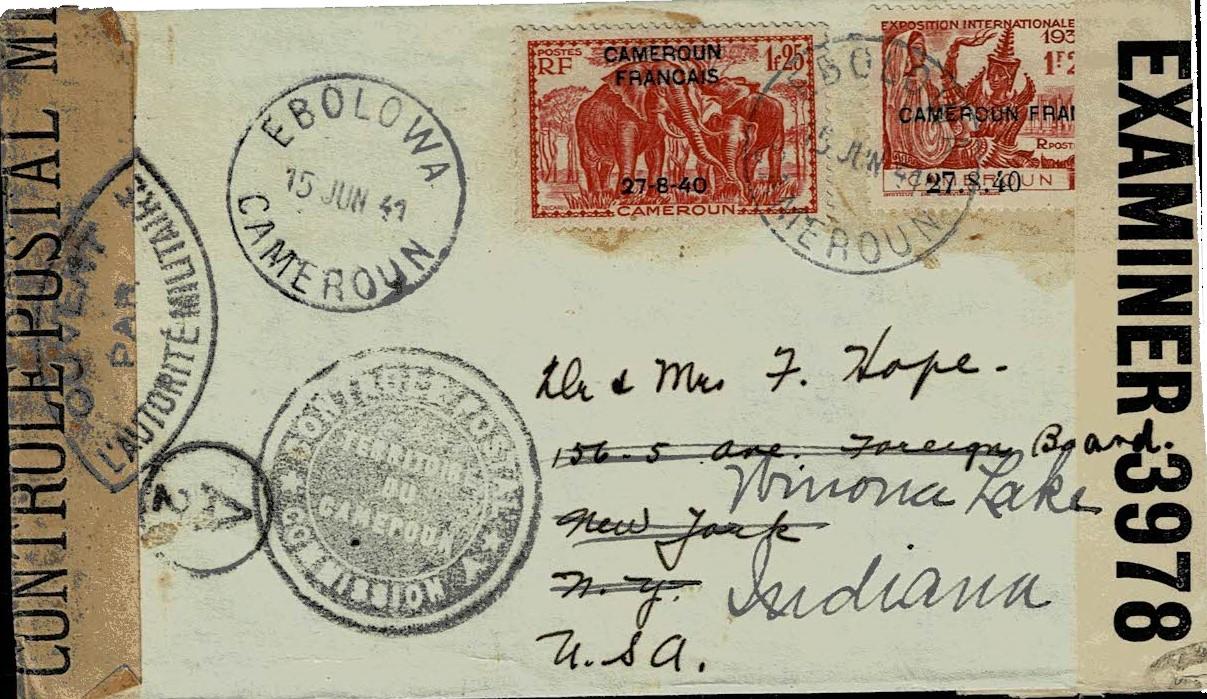 CONTROLE POSTAL MI
OUVERT
PAR
L'AUTORITÉ MILITAIRE
EBOLOWA
15 JUN 41
CAMEROUN
POSTES
RF
1f25
CAMEROUN
FRANÇAIS
27-8-40
CAMEROUN
EXPOSITION INTERNATIONALE
193
1F2
CAMEROUN FRAN
RF POST
27.8.40
EBOLOWA
15 JUN 41
CAMEROUN
CONTROLE POSTAL
TERRITOIRE
DU
CAMEROUN
COMMISSION A
A
2
Dr & Mrs F. Hope.
156-5 Ave. Foreign Board.
Winona Lake
New York
N.Y. Indiana
U.S.A.
EXAMINER 3978